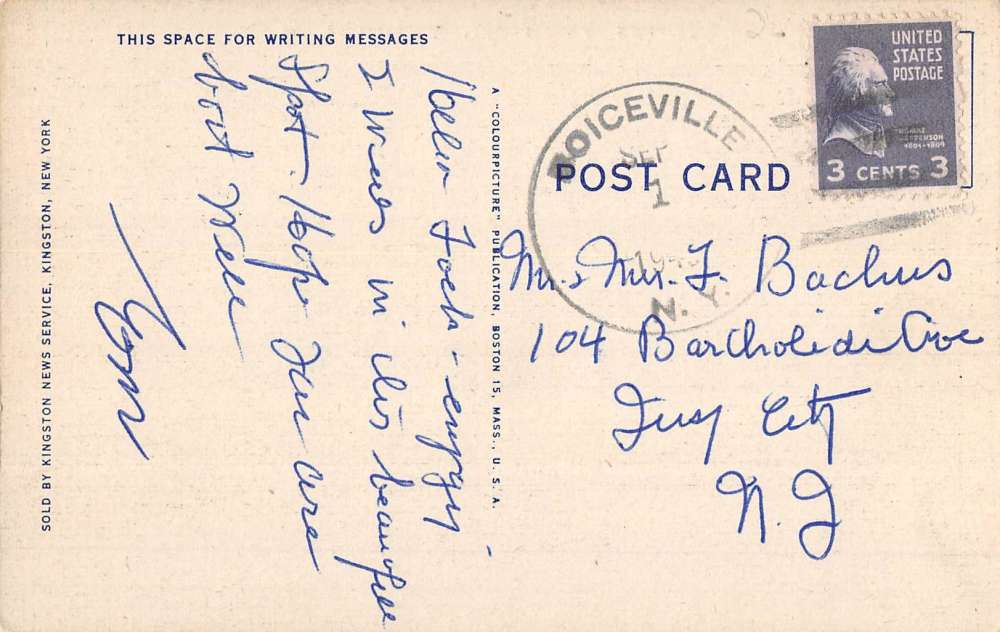 THIS SPACE FOR WRITING MESSAGES
Hello Folks - enjoying
I Wees in this beautiful
Spot. Hope you are
both Well
Tom
SOLD BY KINGSTON NEWS SERVICE, KINGSTON, NEW YORK
A "COLOURPICTURE" PUBLICATION, BOSTON 15, MASS., U. S. A.
BOICEVILLE
SEP
1
N. Y.
POST CARD
UNITED
STATES
POSTAGE
THOMAS
JEFFERSON
1801-1809
3 CENTS 3
Mr. & Mrs. F. Bachus
104 Bartholidi Ave
Jersey City
N. J